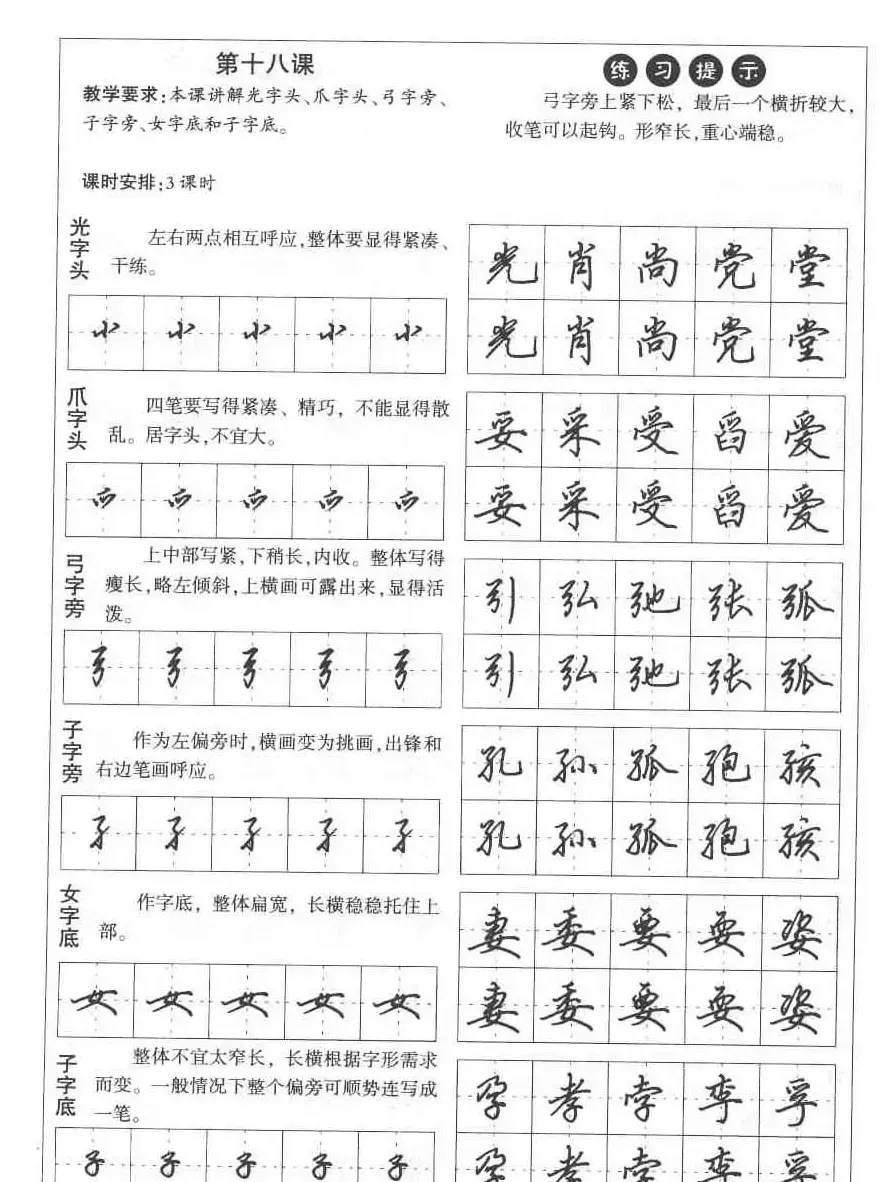 第十八课
教学要求:本课讲解光字头、爪字头、弓字旁、
子字旁、女字底和子字底。
课时安排:3课时
练习提示
弓字旁上紧下松，最后一个横折较大，
收笔可以起钩。形窄长,重心端稳。
光字头
左右两点相互呼应,整体要显得紧凑、
干练。
光肖尚党堂
光肖尚党堂
爪字头
四笔要写得紧凑、精巧，不能显得散
乱。居字头,不宜大。
妥采受舀爱
妥采受舀爱
弓字旁
上中部写紧,下稍长,内收。整体写得
瘦长,略左倾斜,上横画可露出来,显得活
泼。
弓弓弓弓弓
引弘弛张弧
引弘弛张弧
子字旁
作为左偏旁时,横画变为挑画,出锋和
右边笔画呼应。
子子子子子
孔孙孤孢孩
孔孙孤孢孩
女字底
作字底，整体扁宽，长横稳稳托住上
部。
女女女女女
妻委要耍姿
妻委要耍姿
子字底
整体不宜太窄长，长横根据字形需求
而变。一般情况下整个偏旁可顺势连写成
一笔。
子子子子子
孕孝孛李孚
孕孝孛李孚